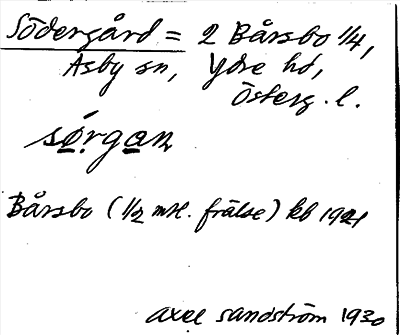 Södergård = 2 Bårsbo 1/4,
Asby sn, Ydre hd,
Österg. l.
sørgan
Bårsbo (1/2 mtl. frälse) kb 1921
Axel Sandström 1930